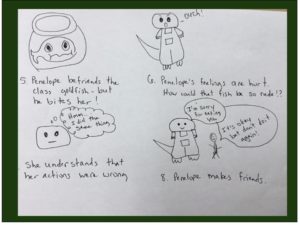 OUCH!
5. Penelope befriends the
class goldfish - but
he bites her!
6. Penelope's feelings are hurt.
How could that fish be so rude!?
Hmm..
I did the
same thing.
She understands that
her actions were wrong
I'm sorry
for eating
you.
It's okay
but don't do it
again!
8. Penelope makes friends.